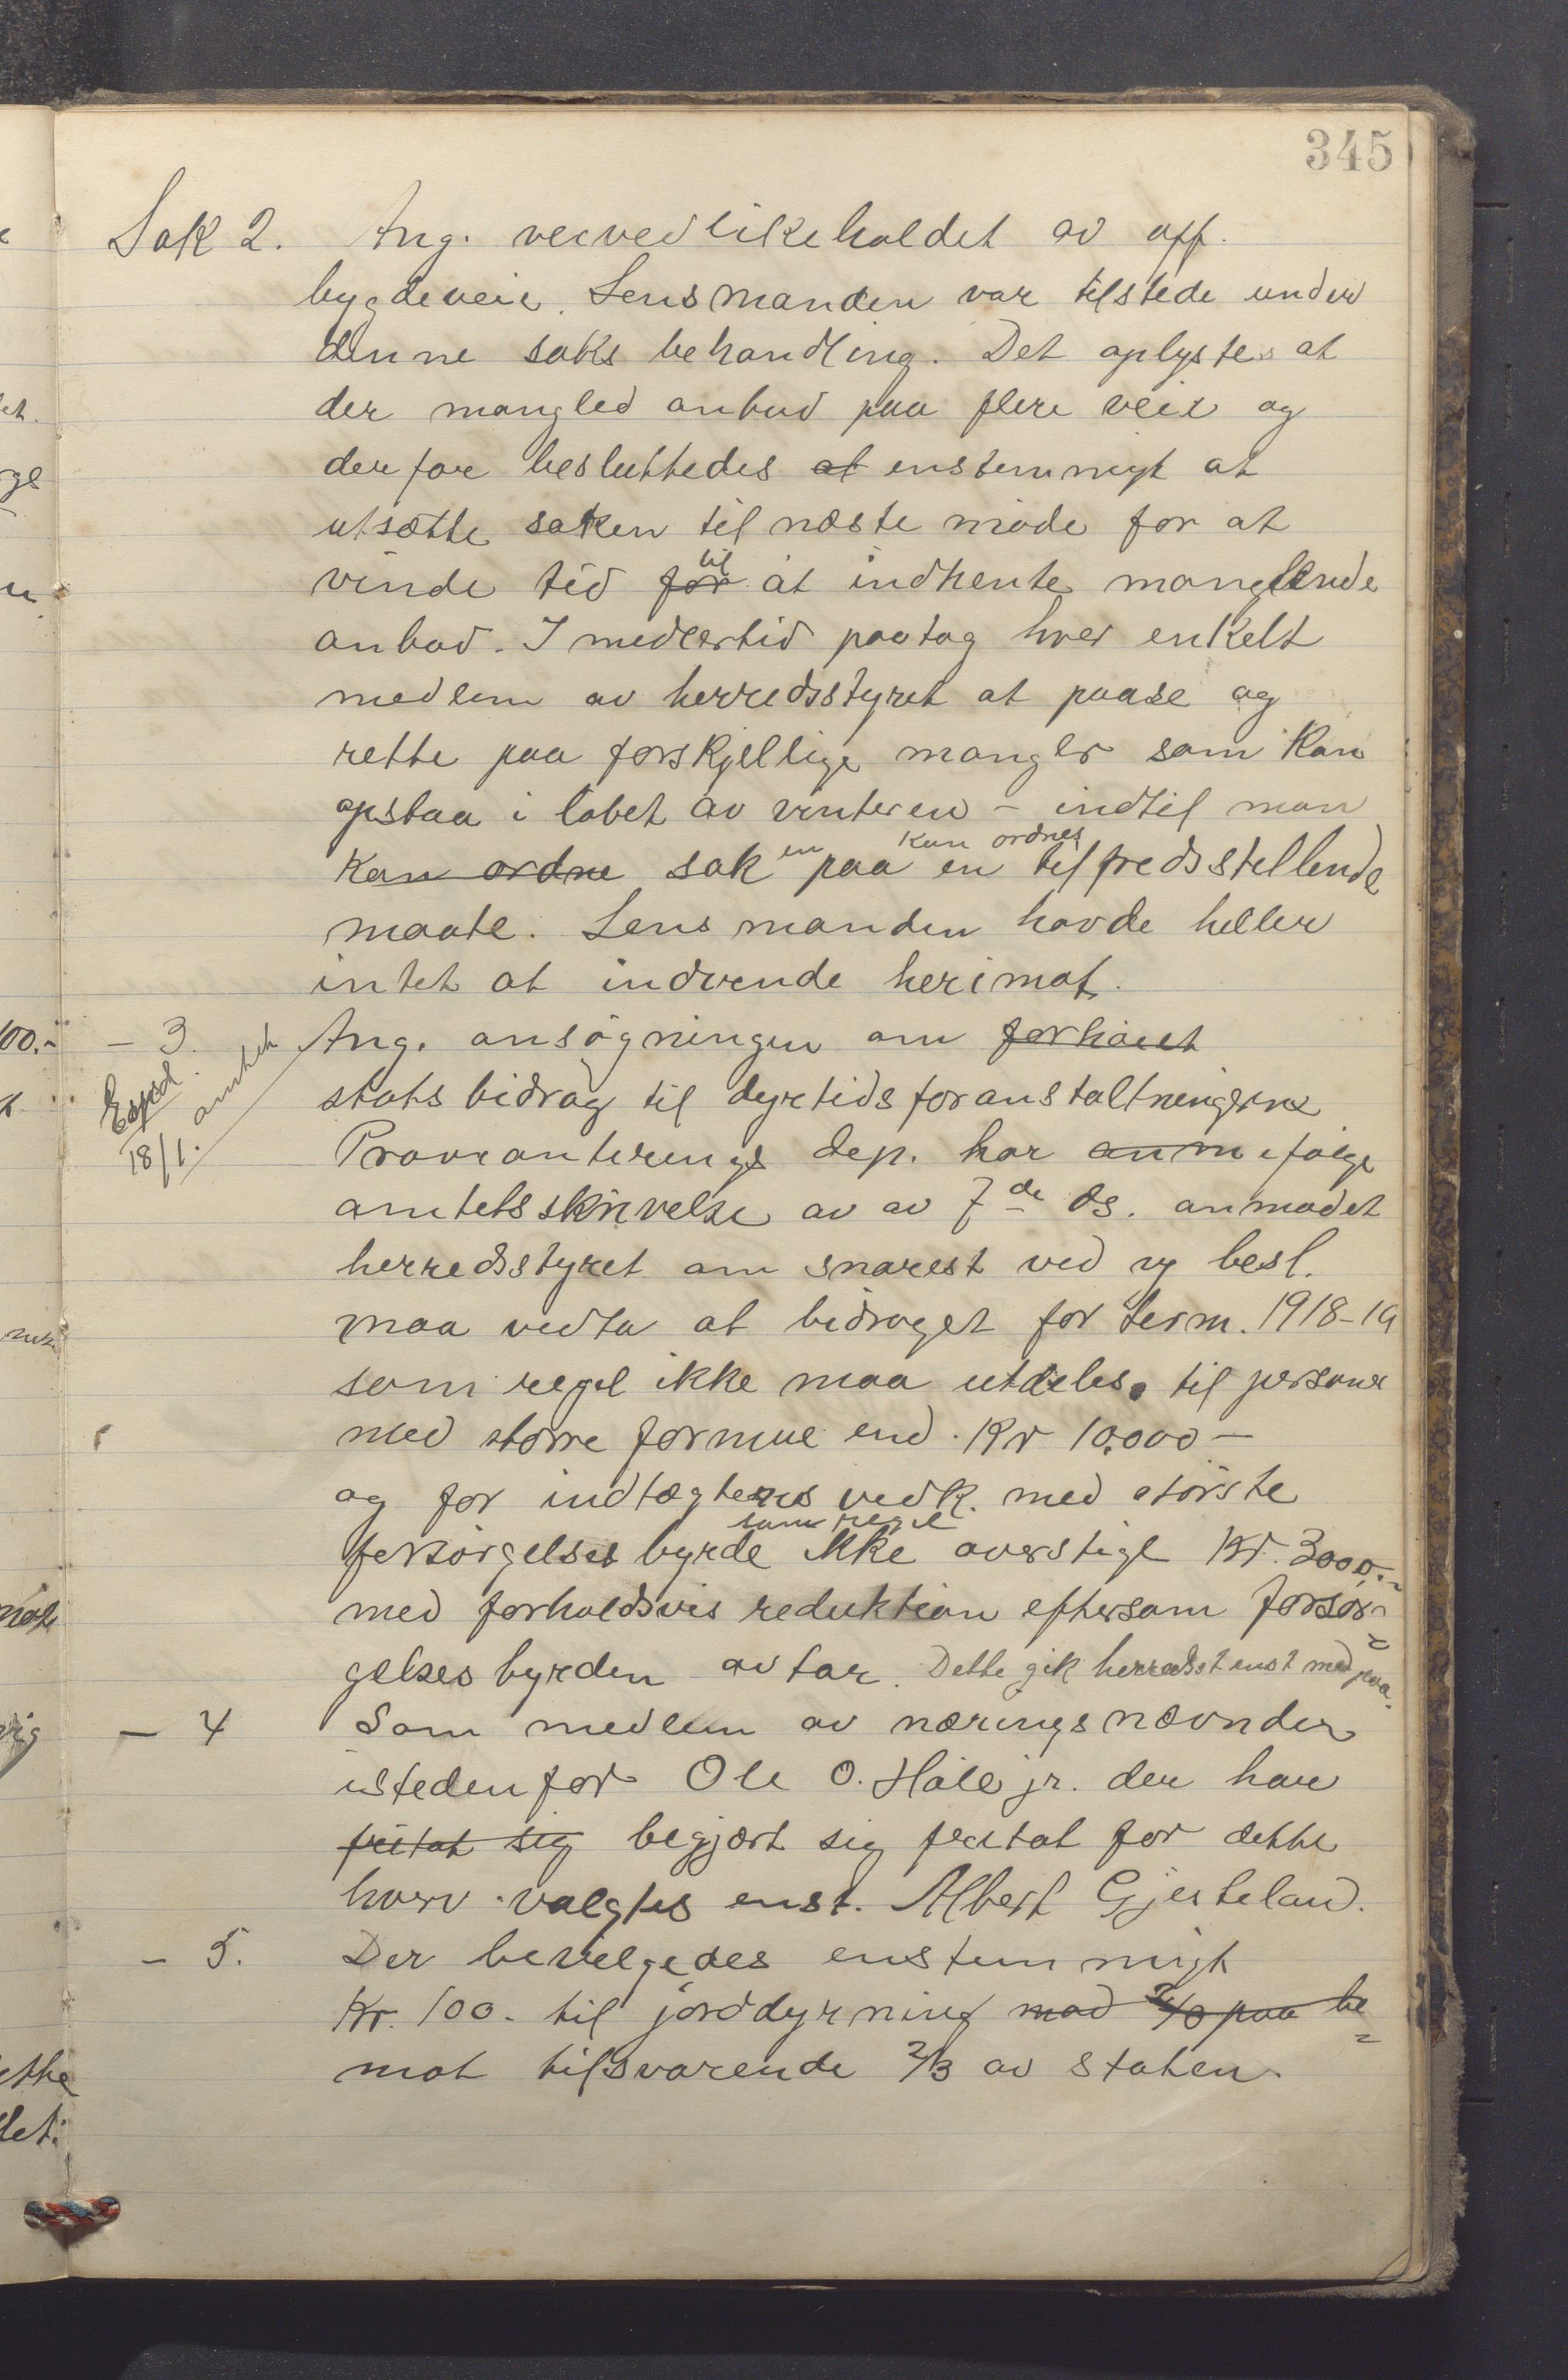 345
Sak 2. Ang. veivedlikeholdet av off.
bygdeveie. Lensmanden var tilstede under
denne saks behandling. Det oplystes at
der mangled anbud paa flere veie og
derfore besluttedes at enstemmigt at
utsætte saken til næste møde for at
vinde tid for til at indhente manglende
anbud. Imedlertid paatog hver enkelt
medlem av herredsstyret at paase og
rette paa forskjellige mangler som kan
opstaa i løbet av vinteren – indtil man
kan ordne saken paa kan ordnes en tilfredsstellende
maate. Lensmanden havde heller
intet at indvende herimot.
– 3. Ang. ansøgningen om forhøiet
Exped. 18/1. amtet
statsbidrag til dyrtidsforanstaltningerne
Provianterings dep. har anm ifølge
amtets skrivelse av av 7de ds. anmodet
herredsstyret om snarest ved ny besl.
maa vedta at bidraget for term. 1918-19
som regel ikke maa utdeles til persone
med større formue end Kr 10.000 –
og for indtægternes vedk. med største
forsørgelses byrde som regel ikke overstige Kr. 3000.-
med forholdsvis reduktion eftersom forsør-
gelses byrden avtar. Dette gik herredsst enst med paa.
– 4 Som medlem av næringsnævnden
istedenfor Ole O. Håle jr. der have
fritat sig begjært sig fritat for dette
hverv valgtes enst. Albert Gjesteland.
– 5. Der bevilgedes enstemmigt
Kr. 100.- til jorddyrning mod 2/3 paa be
mot tilsvarende 2/3 av staten.